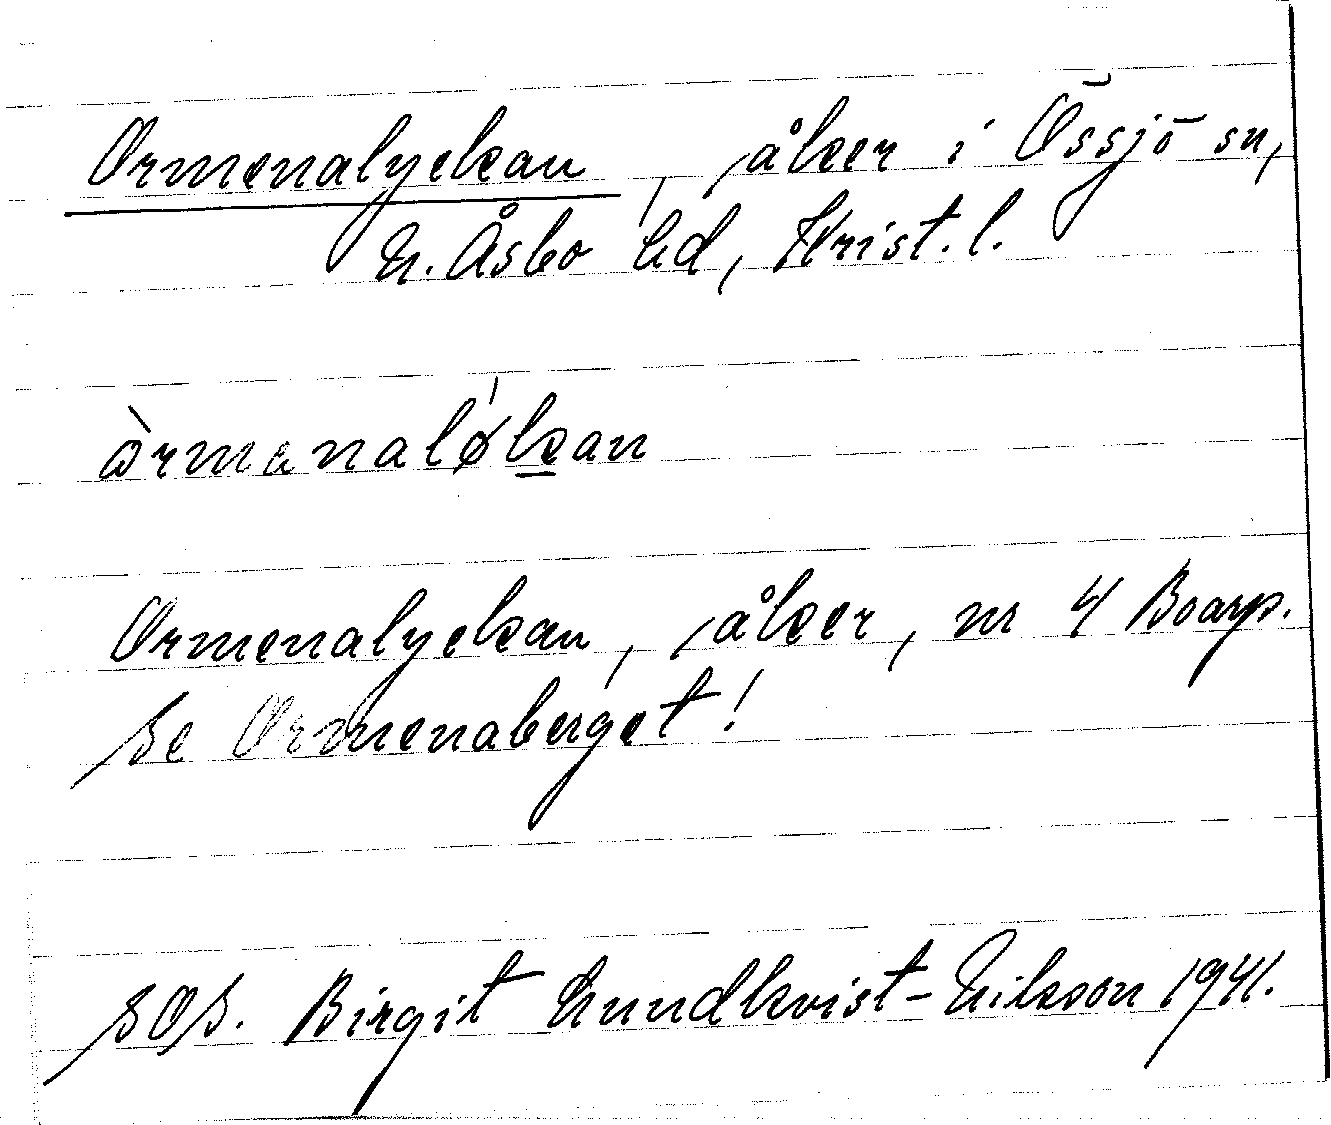 Ormenalyckan, åker i Össjö sn,
N. Åsbo hd, Krist. l.
òrmenaløkan
Ormenalyckan, åker, nr 4 Boarp.
Se Ormenaberget!
SOS. Birgit Lundkvist-Nilsson 1941.